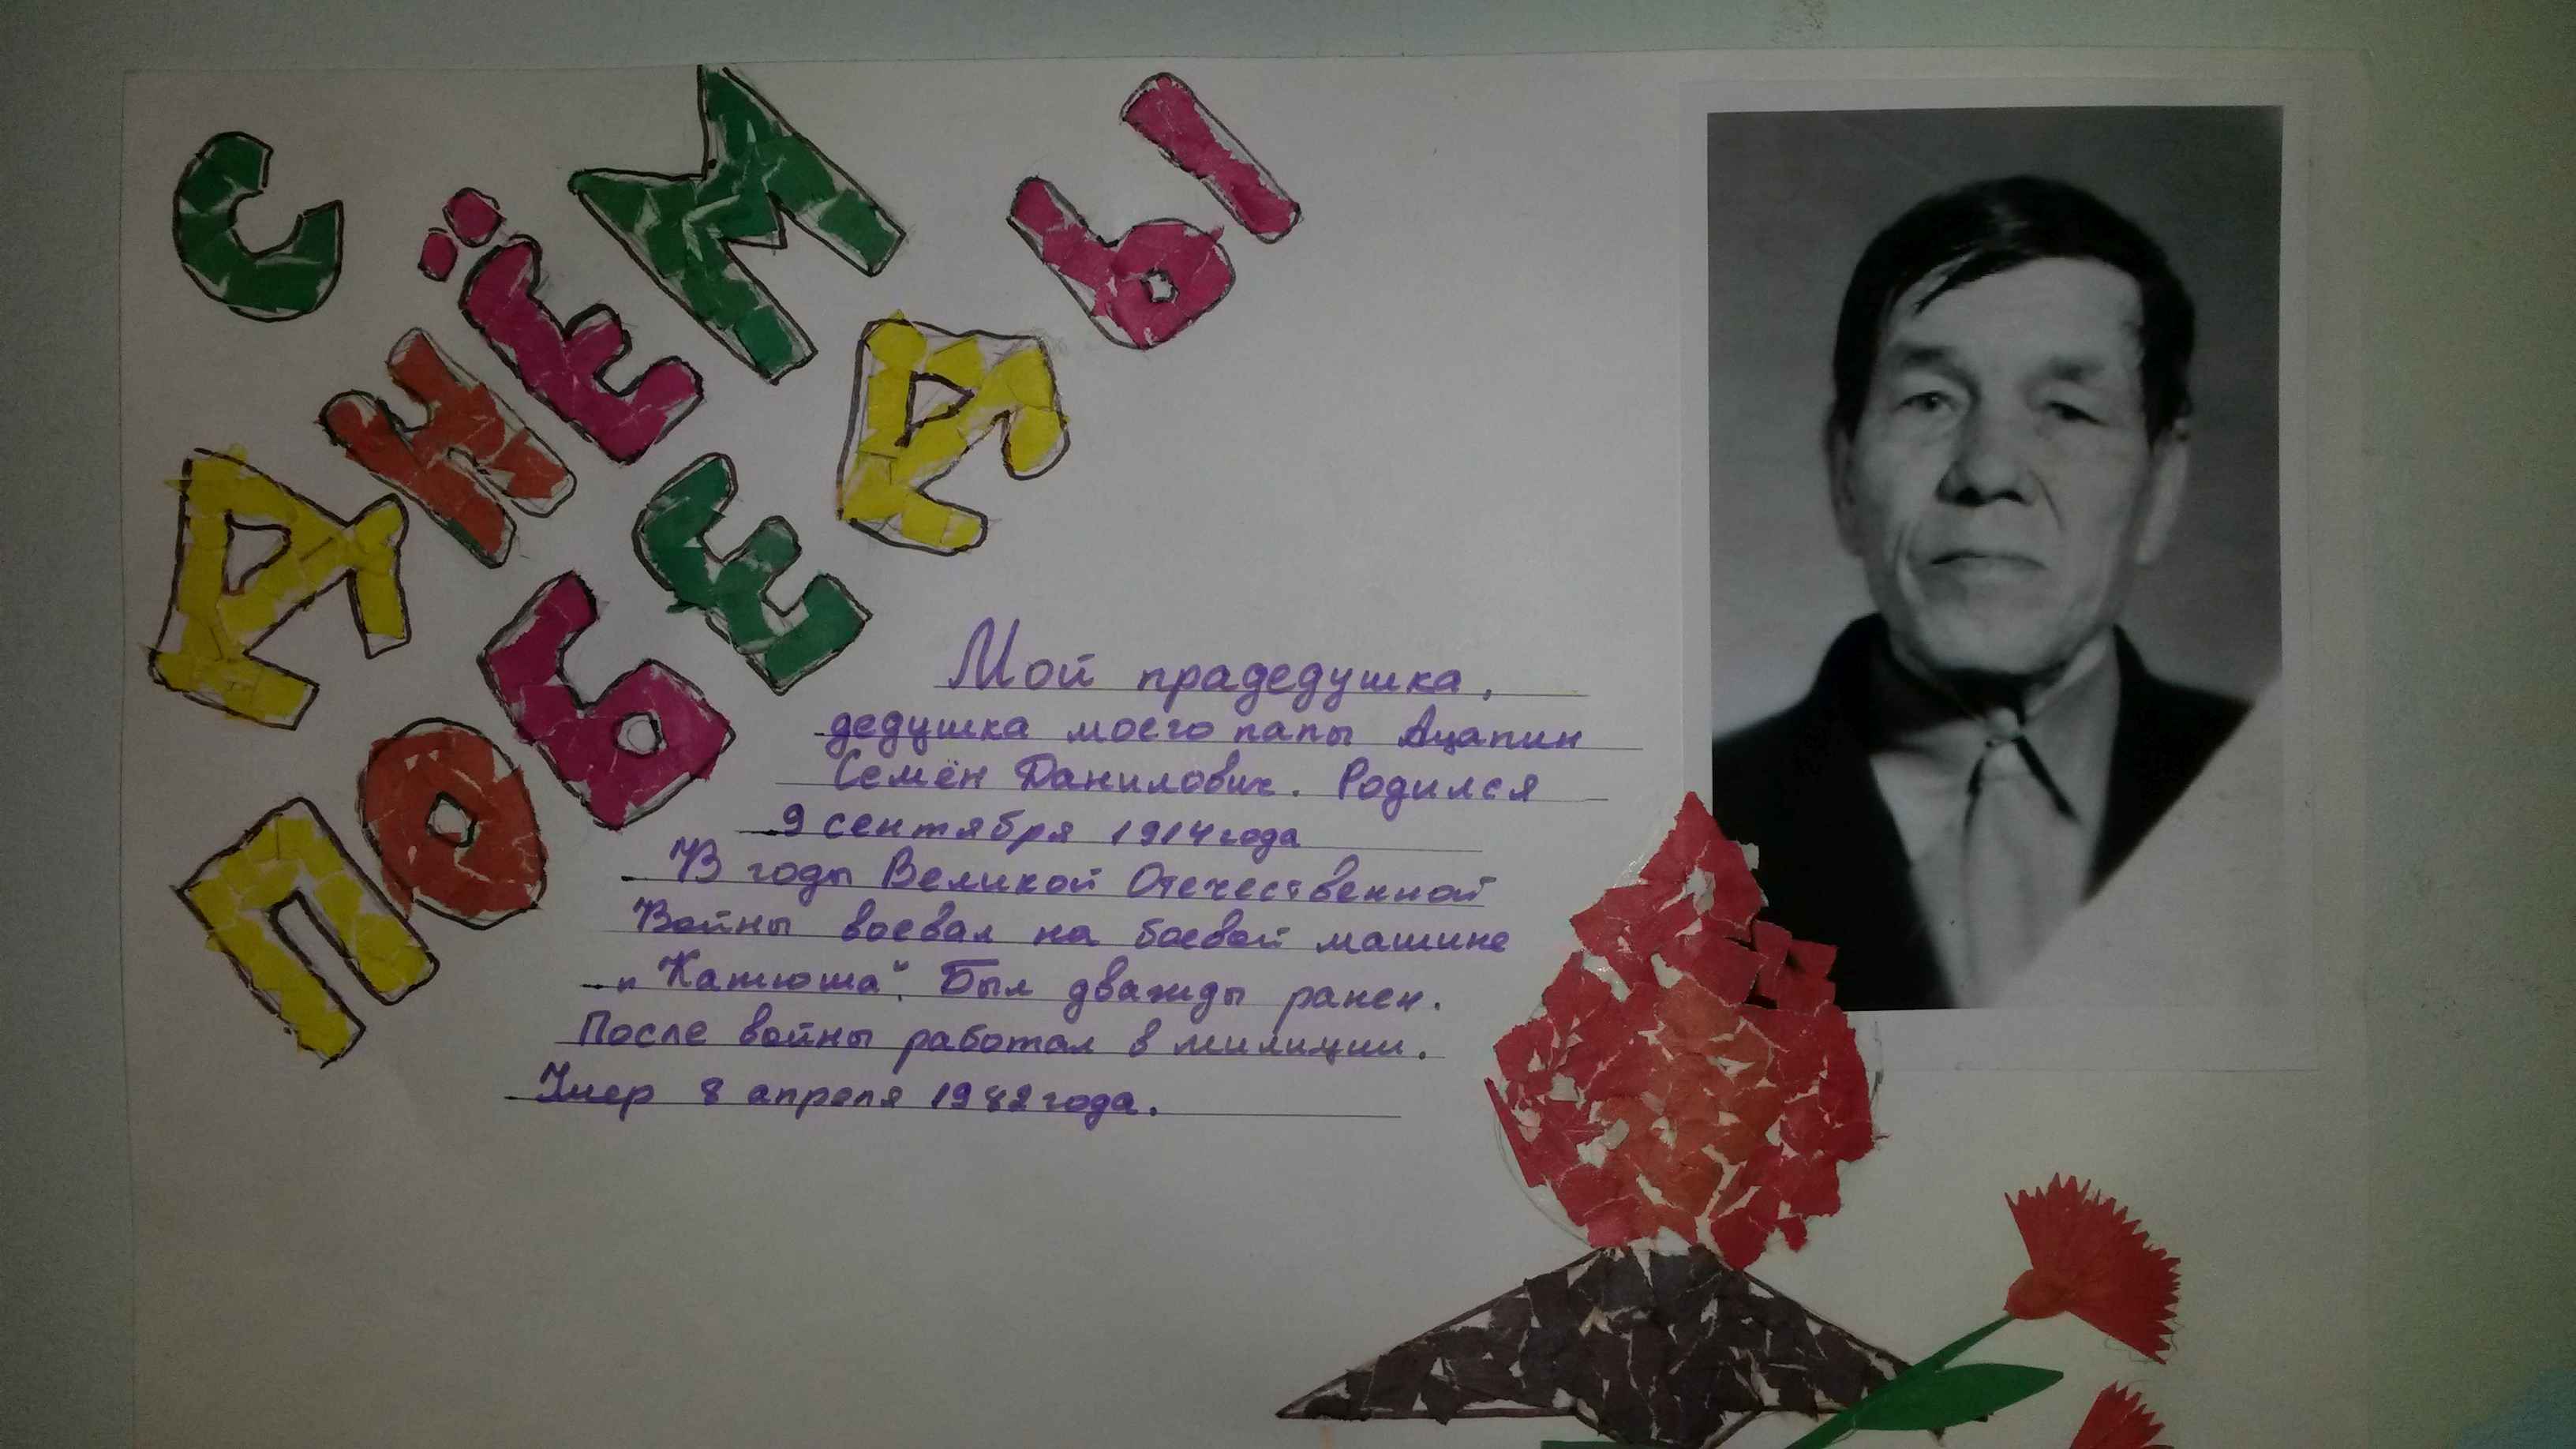 С
ДНЁМ
ПОБЕДЫ
Мой прадедушка,
дедушка моего папы Ацапин
Семён Данилович. Родился
9 сентября 1914 года
В годы Великой Отечественной
Войны воевал на боевой машине
„Катюша". Был дважды ранен.
После войны работал в милиции.
Умер 8 апреля 1982 года.